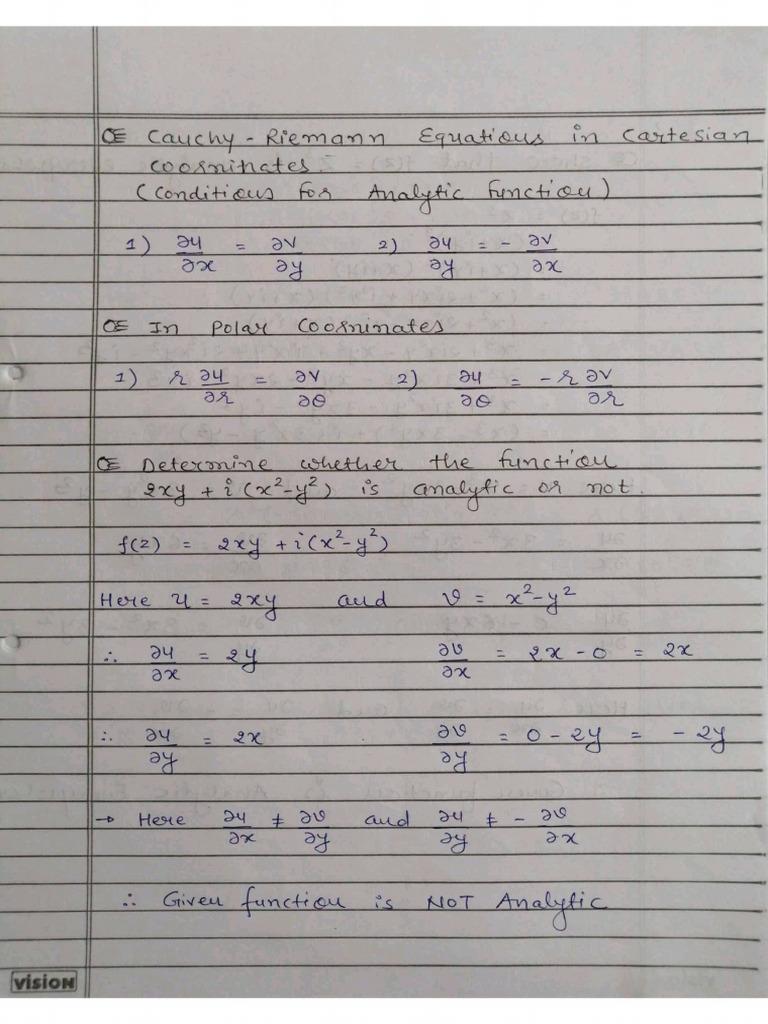 Œ Cauchy-Riemann Equations in Cartesian
Coorninates.
(Conditions for Analytic function)
1) ∂u/∂x = ∂v/∂y 2) ∂u/∂y = - ∂v/∂x
Œ In Polar Coorninates
1) r ∂u/∂r = ∂v/∂θ 2) ∂u/∂θ = - r ∂v/∂r
Œ Determine whether the function
2xy + i(x²-y²) is analytic or not.
f(z) = 2xy + i(x²-y²)
Here u = 2xy and v = x²-y²
∴ ∂u/∂x = 2y ∂v/∂x = 2x - 0 = 2x
∴ ∂u/∂y = 2x ∂v/∂y = 0 - 2y = - 2y
→ Here ∂u/∂x ≠ ∂v/∂y and ∂u/∂y ≠ - ∂v/∂x
∴ Given function is NOT Analytic
VISION